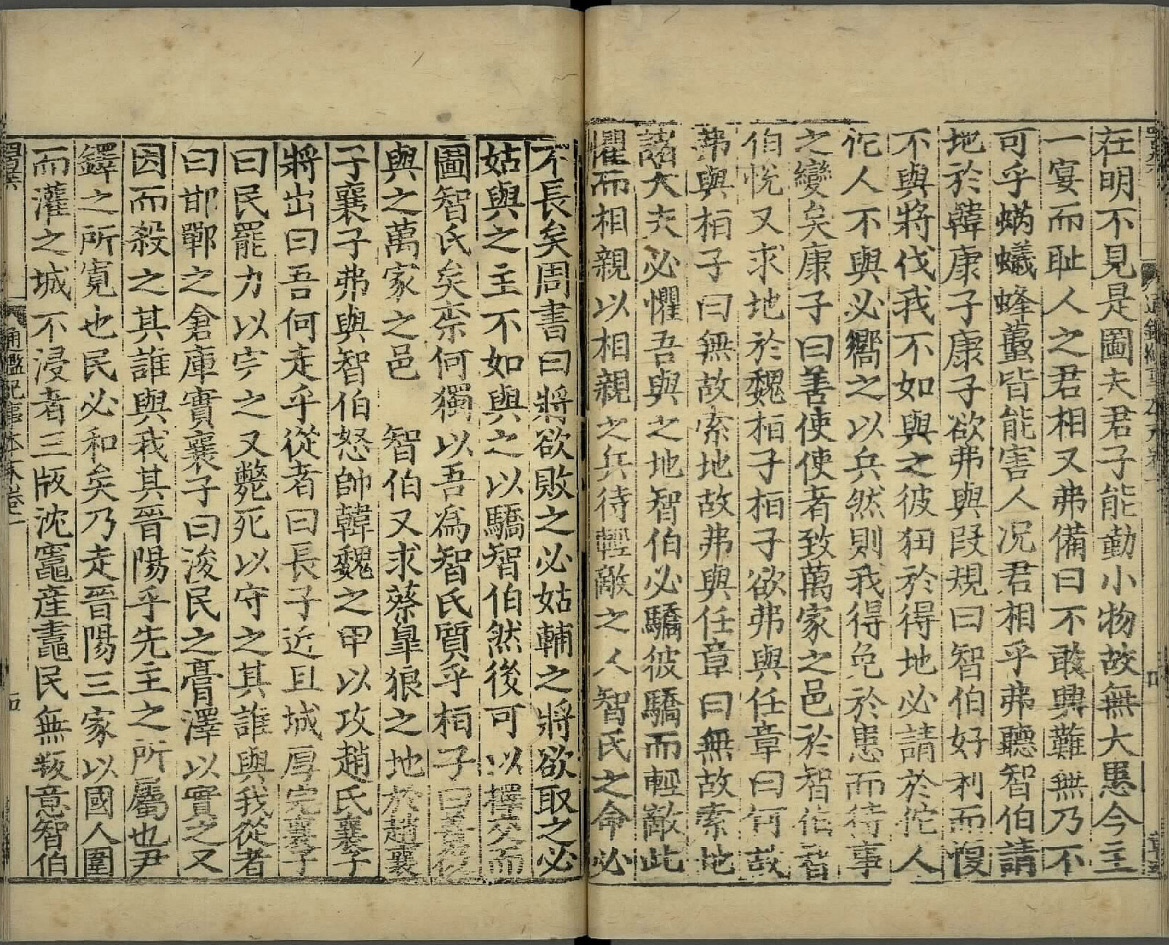 在明不見是圖夫君子能勤小物故無大患今主
一宴而耻人之君相又弗備曰不敢興難無乃不
可乎蜹蟻蜂蠆皆能害人况君相乎弗聽智伯請
地於韓康子康子欲弗與段規曰智伯好利而愎
不與將伐我不如與之彼狃於得地必請於佗人
佗人不與必嚮之以兵然則我得免於患而待事
之變矣康子曰善使使者致萬家之邑於智伯智
伯悅又求地於魏桓子桓子欲弗與任章曰何故
弗與桓子曰無故索地故弗與任章曰無故索地
諸大夫必懼吾與之地智伯必驕彼驕而輕敵此
懼而相親以相親之兵待輕敵之人智氏之命必
不長矣周書曰將欲敗之必姑輔之將欲取之必
姑與之主不如與之以驕智伯然後可以擇交而
圖智氏矣柰何獨以吾爲智氏質乎桓子曰善復
與之萬家之邑 智伯又求蔡皐狼之地於趙襄
子襄子弗與智伯怒帥韓魏之甲以攻趙氏襄子
將出曰吾何走乎從者曰長子近且城厚完襄子
曰民罷力以完之又斃死以守之其誰與我從者
曰邯鄲之倉庫實襄子曰浚民之膏澤以實之又
因而殺之其誰與我其晉陽乎先主之所屬也尹
鐸之所寬也民必和矣乃走晉陽三家以國人圍
而灌之城不浸者三版沈竈産鼃民無叛意智伯
通鑑紀事本末卷一